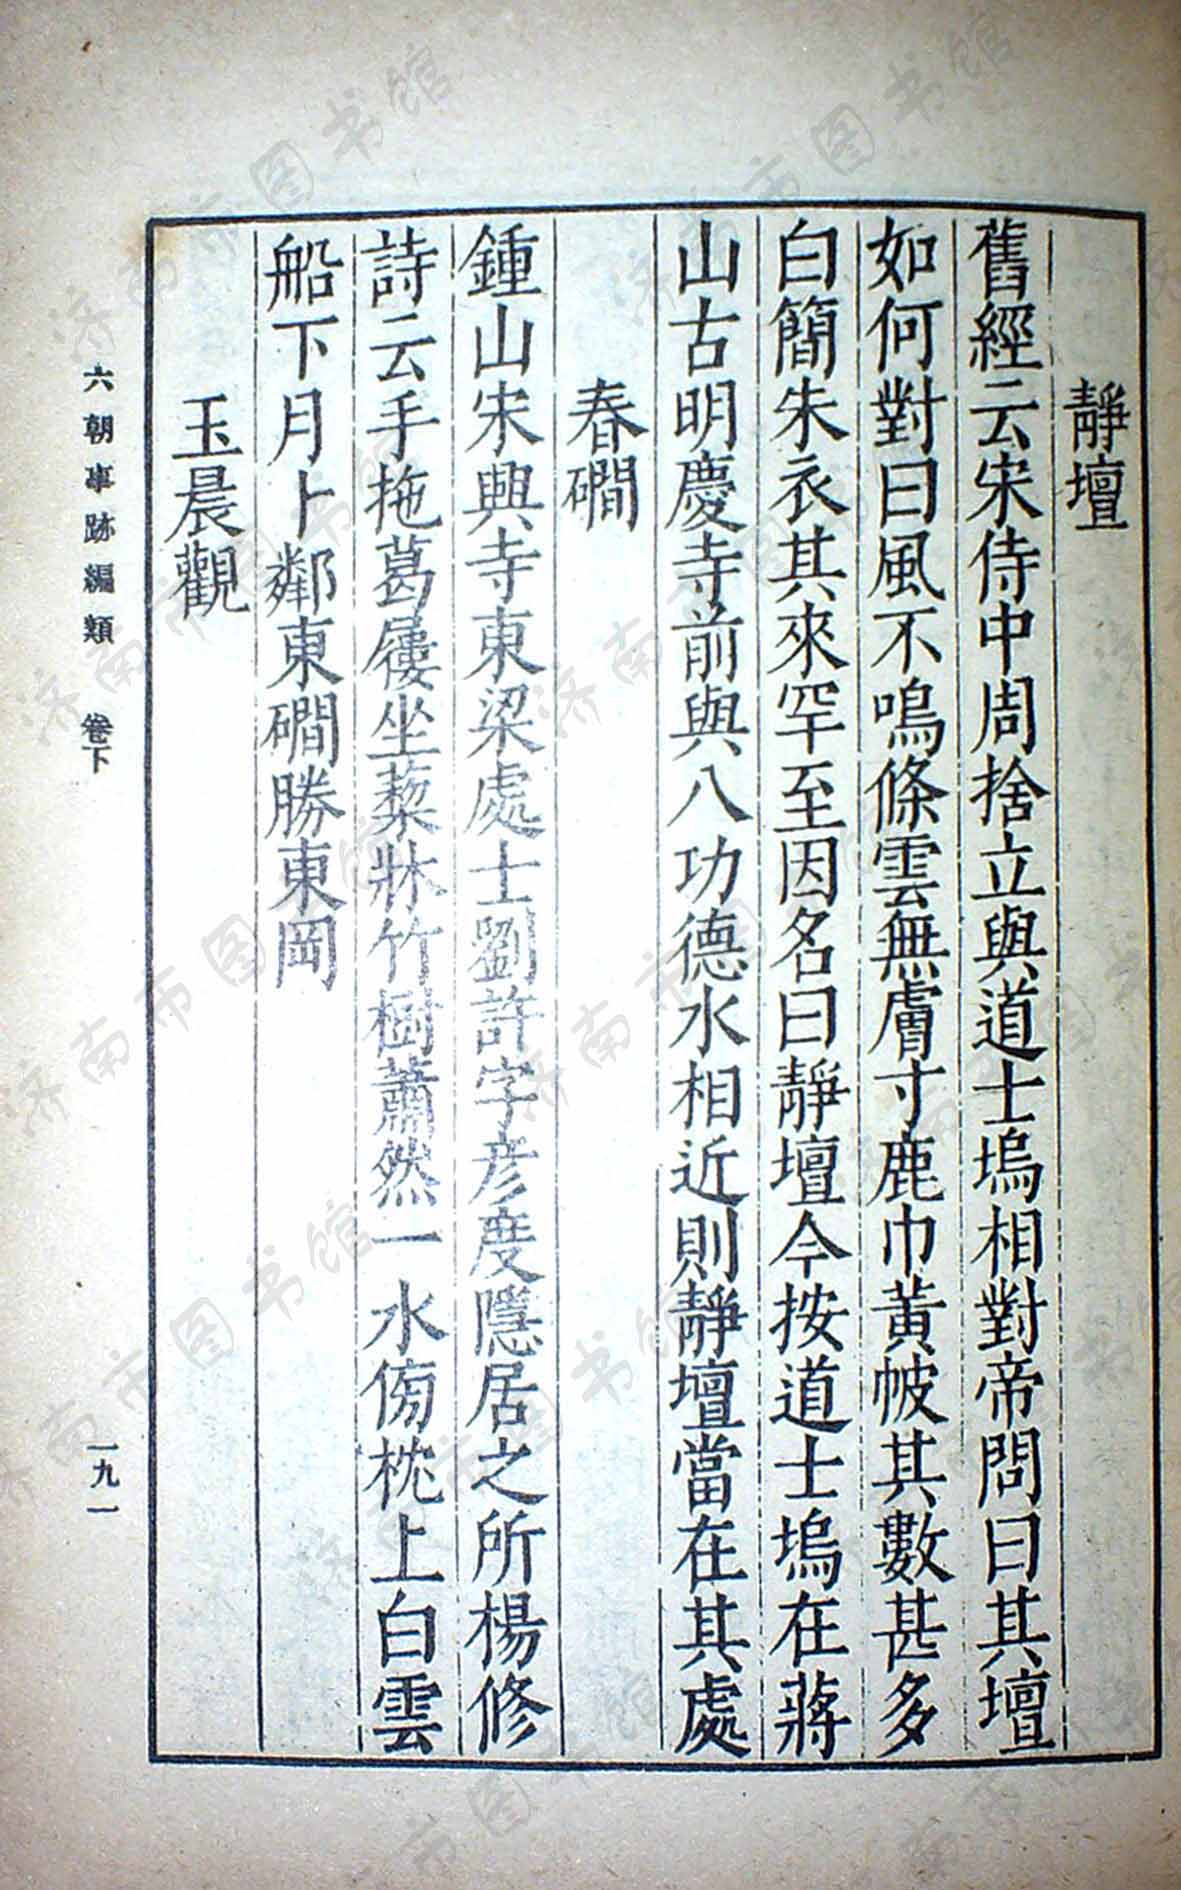 靜壇
舊經云宋侍中周捨立與道士塢相對帝問曰其壇
如何對曰風不鳴條雲無膚寸鹿巾黃帔其數甚多
白簡朱衣其來罕至因名曰靜壇今按道士塢在蔣
山古明慶寺前與八功德水相近則靜壇當在其處
春磵
鍾山宋興寺東梁處士劉許字彦度隱居之所楊修
詩云手拖葛屨坐藜牀竹樹蕭然一水傍枕上白雲
船下月卜鄰東磵勝東岡
玉晨觀
六朝事跡編類 卷下
一九一
济南市图书馆